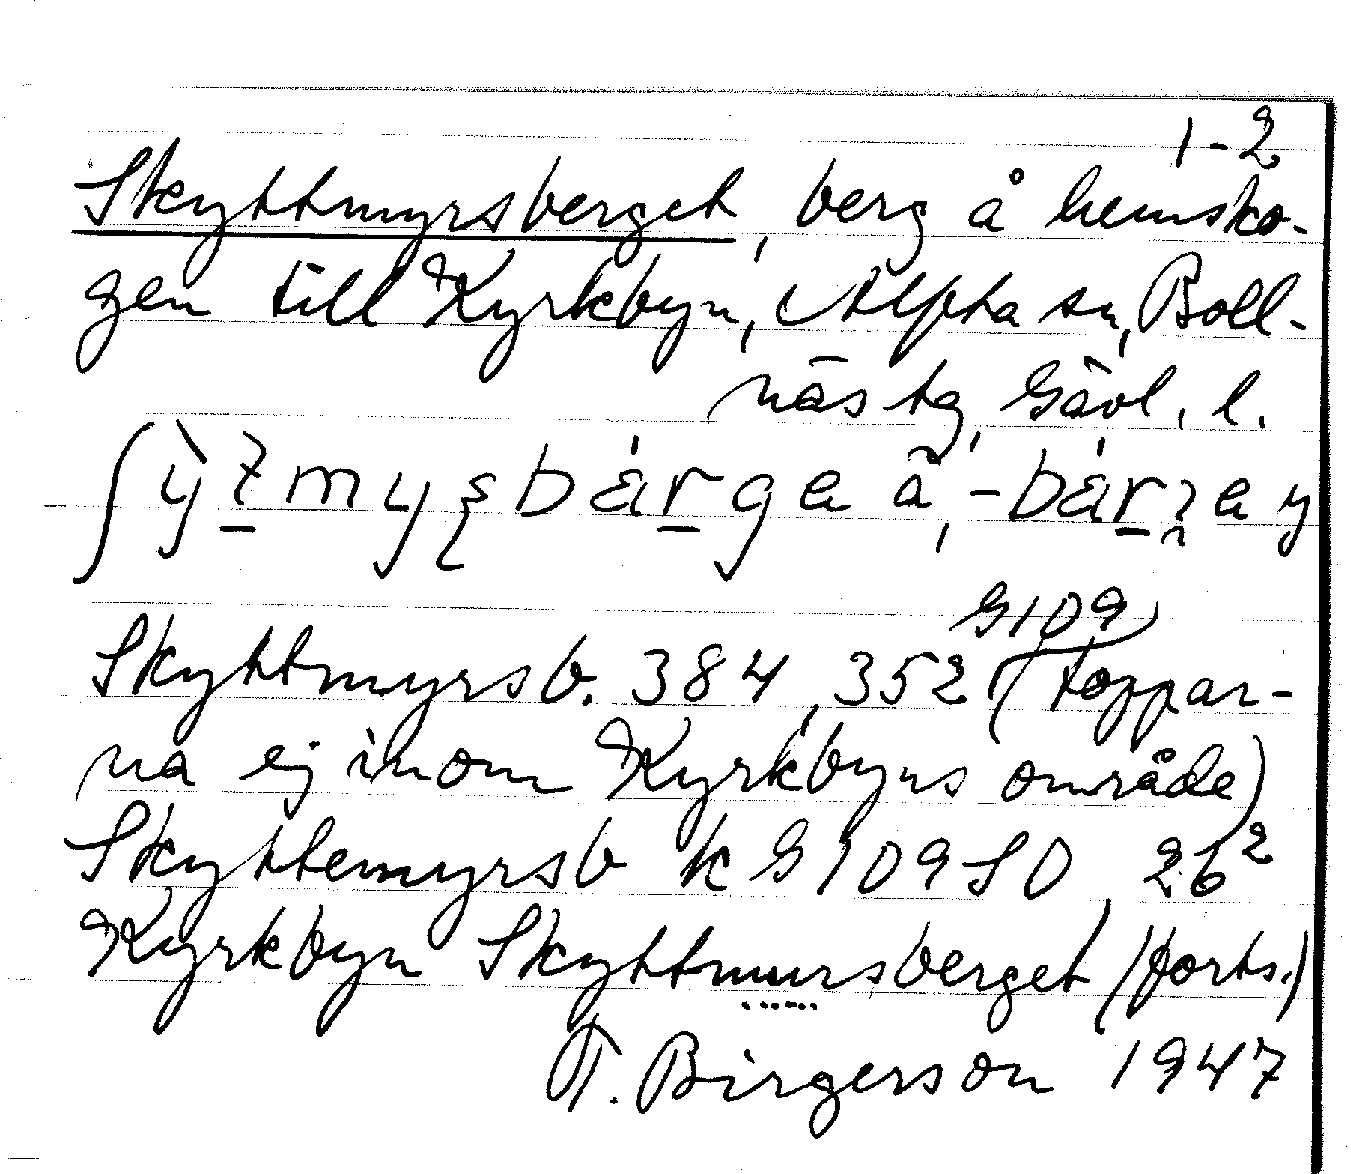 1-2
Skyttmyrsberget, berg å hemsko-
gen till Kyrkbyn, Alfta sn, Boll-
näs tg, Gävl. l.
G109
Skyttmyrsb. 384, 352 (toppar-
na ej inom Kyrkbyns område)
Skyttemyrsb k G109SO, 26²
Kyrkbyn Skyttmursberget (forts.)
T. Birgerson 1947